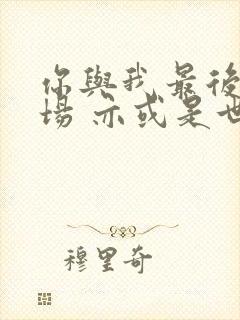 你與我最後
場 亦或是世
穆里奇